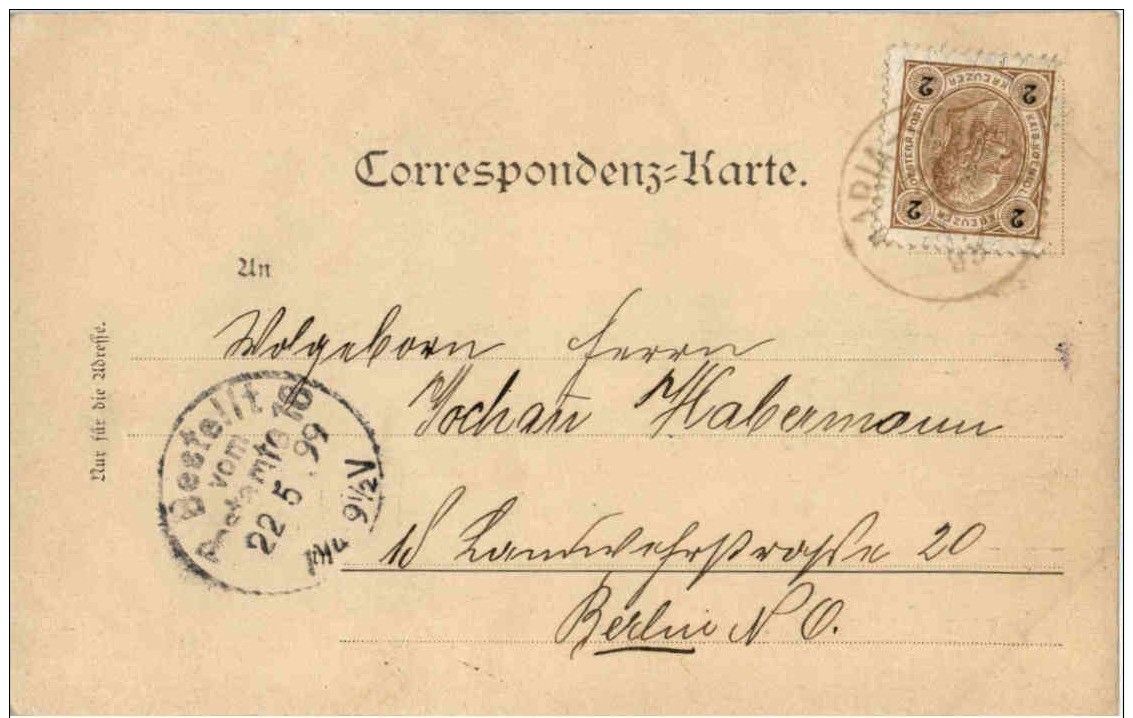 Correspondenz-Karte.
2 KREUZER 2
2 KREUZER 2
An
Wolgeborn Herrn
Habermann
Landwehrstrasse 20
Berlin N O.
Nur für die Adresse.
Bestellt
vom
Postamte 18
22 5 . 99
9½V